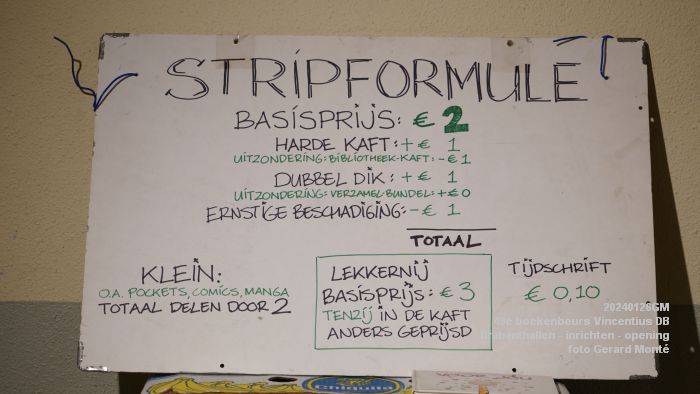 STRIPFORMULE
BASISPRIJS: € 2
HARDE KAFT: + € 1
UITZONDERING: BIBLIOTHEEK-KAFT: - € 1
DUBBEL DIK: + € 1
UITZONDERING: VERZAMEL-BUNDEL: + € 0
ERNSTIGE BESCHADIGING: - € 1
TOTAAL
KLEIN:
O.A. POCKETS, COMICS, MANGA
TOTAAL DELEN DOOR 2
LEKKERNIJ
BASISPRIJS: € 3
TENZIJ IN DE KAFT
ANDERS GEPRIJSD
TIJDSCHRIFT
€ 0,10
20240126GM
boekenbeurs Vincentius DB
Brabanthallen - inrichten - opening
foto Gerard Monté
Chiquita